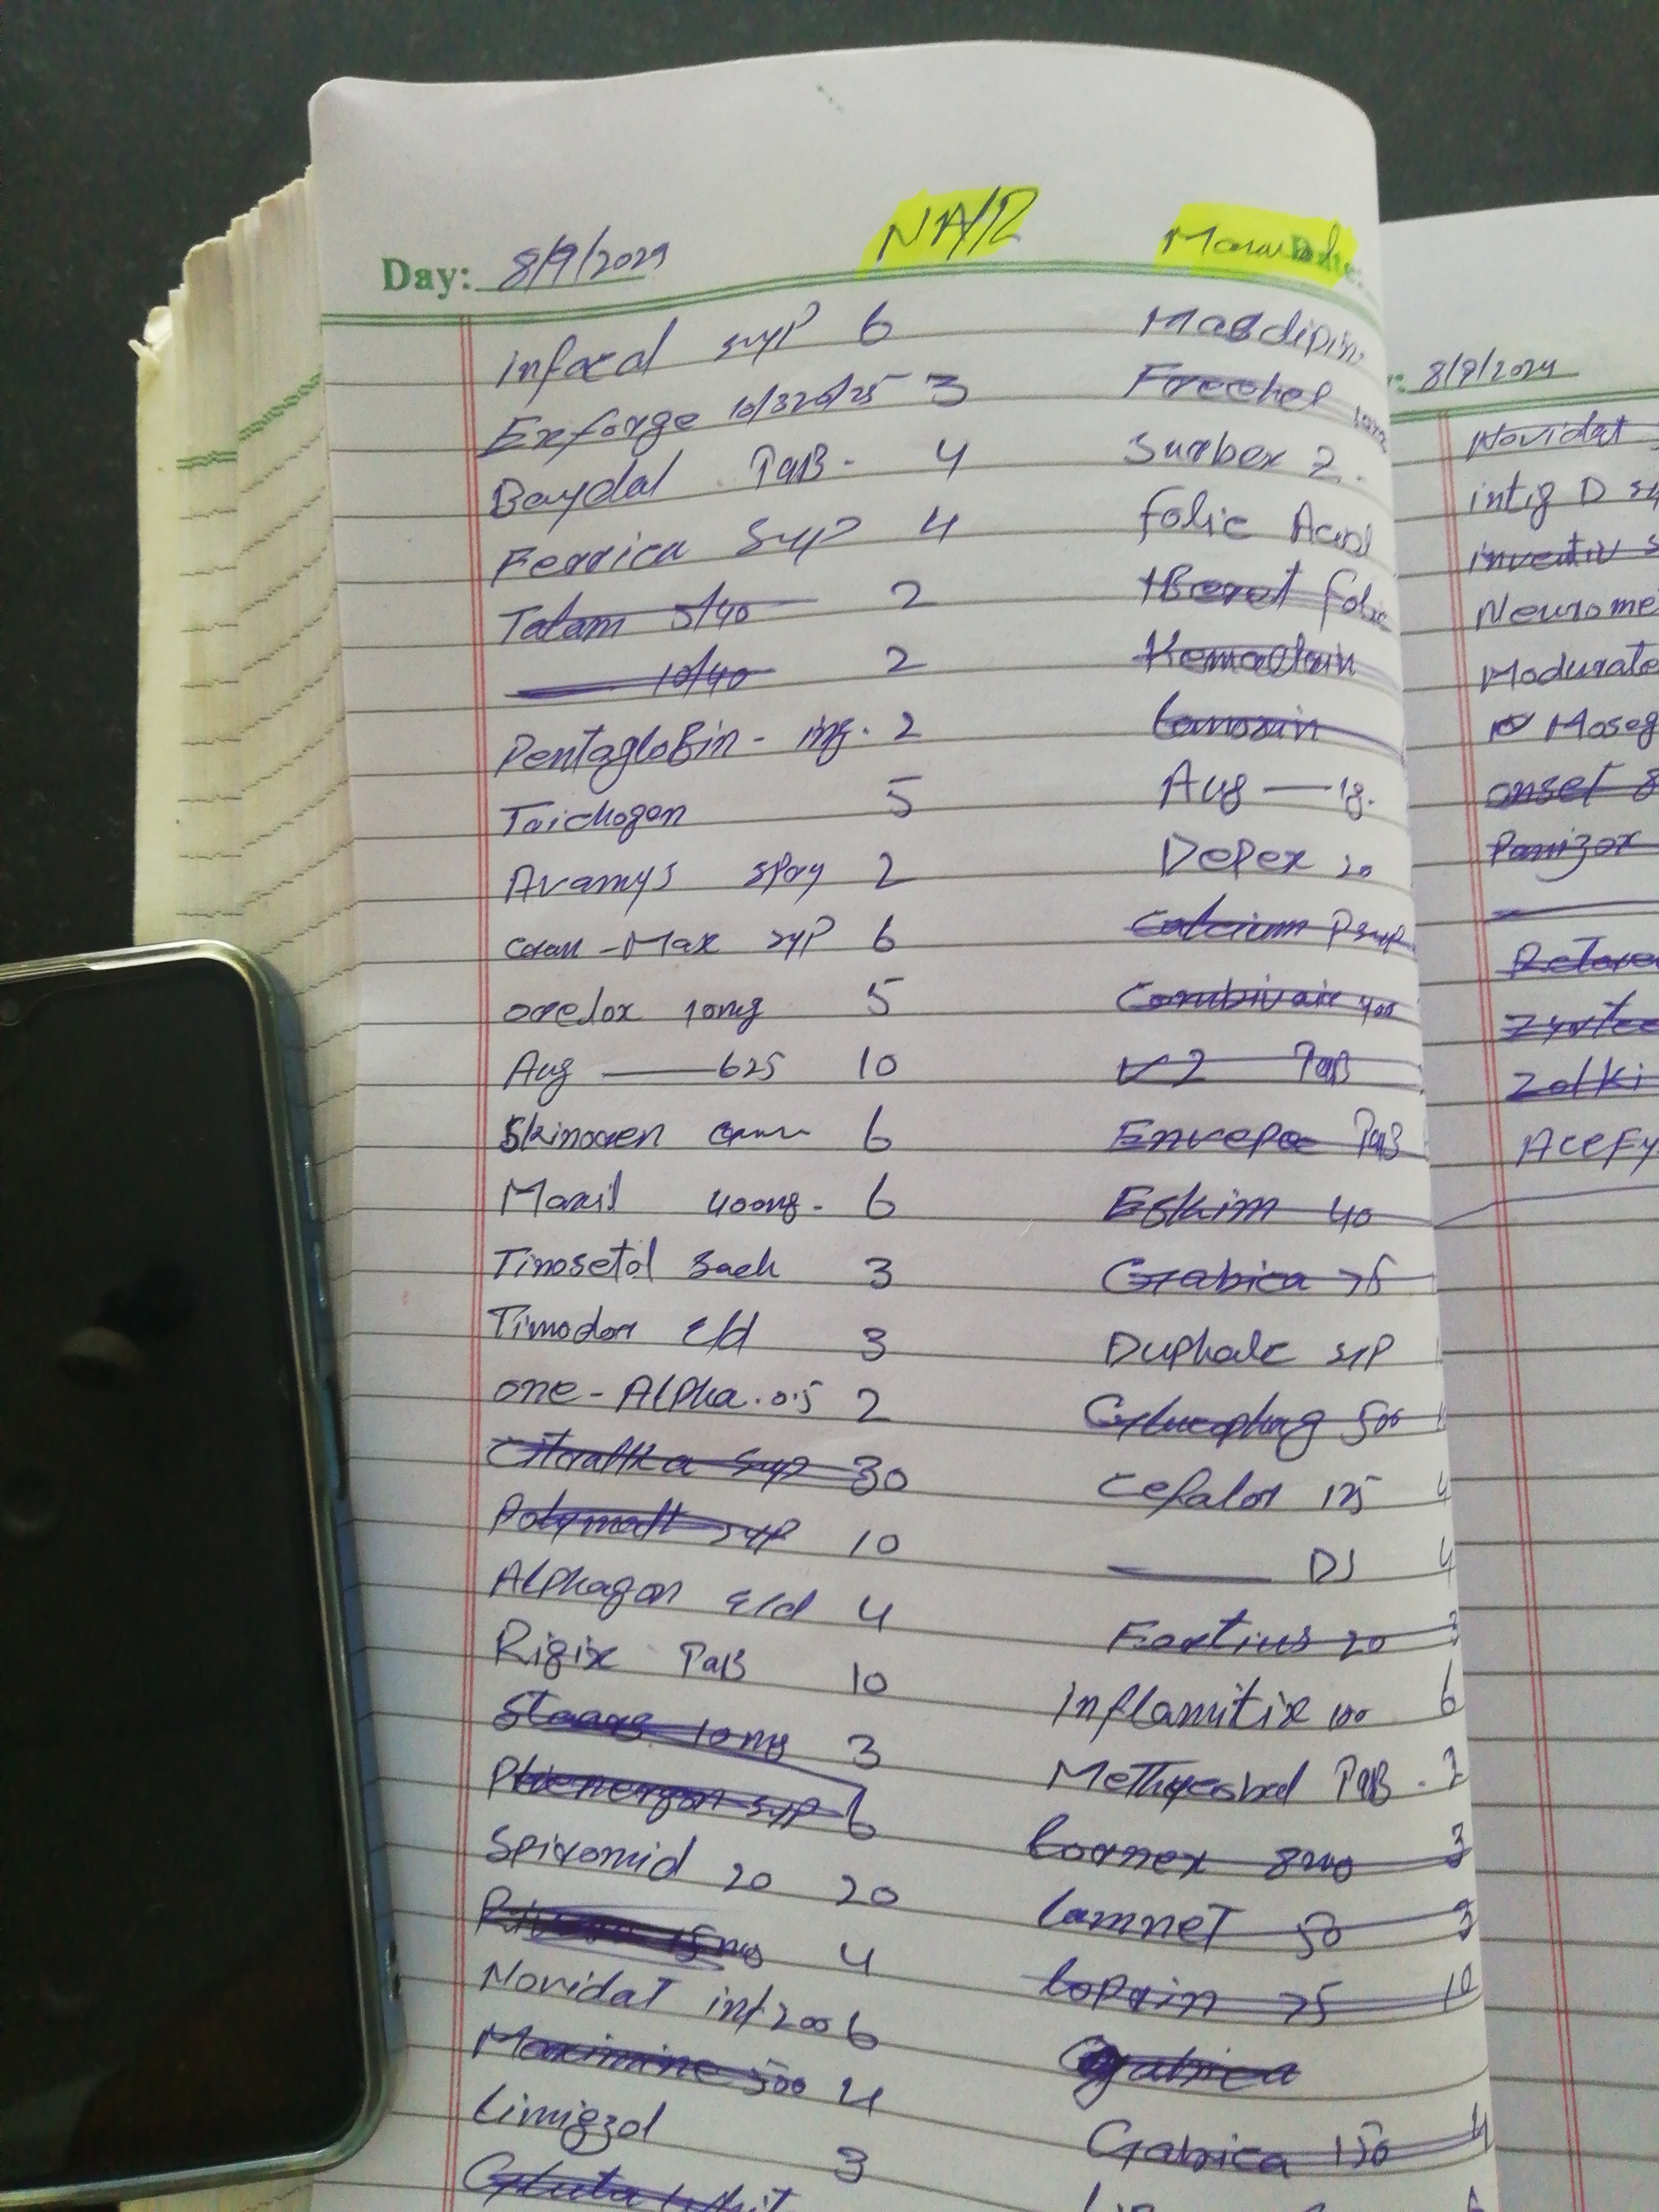 Day: 8/9/2024
NA/R
Infacol syp 6
Exforge 10/320/25 3
Baydal TaB. 4
Ferrica Syp 4
Tatam 5/40 2
10/40 2
PentagloBin - inj. 2
Trichogen 5
Avamys spray 2
Cran-Max syp 6
orelox 10mg 5
Aug — 625 10
Skinoren 6
Maxil 400mg. 6
Tinosetol Sach 3
Timodor E/d 3
one-Alpha.0.5 2
Citralka Syp 30
Polymalt syp 10
Alphagan E/d 4
Rigix TaB 10
10 mg 3
Phenergan syp 6
Spiromid 20 20
15mg 4
Novidat inf 200 6
Maximine 500 4
Limigzol 3
Gluta
Masdipin
Freehel
Surbex Z.
folic Acid
IBeret folic
Kemadrin
Lanoxin
Aug — 1g.
Depex 20
Calcium P syp
Combivair 400
V2 TaB
Envepe TaB
Eskim 40
Gabica 75
Duphalc syp
Glucophag 500
Cefalor 125 4
— DS 4
Fortius 20 3
Inflamitix 100 6
Methycobal TaB. 2
Lornex 8mg 3
Lamnet 50 3
Loprin 75 10
Gabica
Gabica 150 4
8/9/2024
Novidat
intig D
inventiv
Neurome
Modurate
Moseg
onset 8
Panizox
Zyrtec
Zolki
Acefy